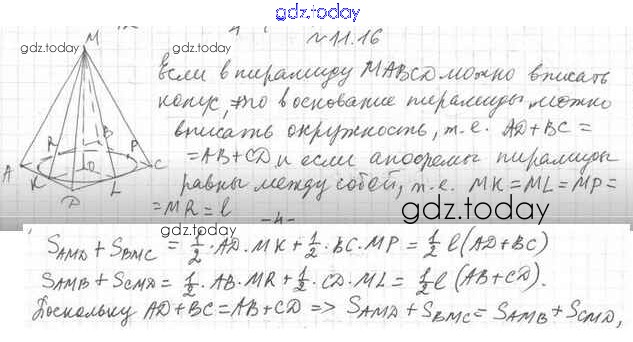 gdz.today
gdz.today
gdz.today
№11.16
M
Если в пирамиду MABCD можно вписать
конус, то в основание пирамиды можно
вписать окружность, т.е. AD+BC=
=AB+CD и если апофемы пирамиды
равны между собой, т.е. MK=ML=MP=
=MR=l
A
R
B
P
O
K
L
C
D
gdz.today
S_AMD + S_BMC = 1/2·AD·MK + 1/2·BC·MP = 1/2 l(AD+BC)
S_AMB + S_CMD = 1/2·AB·MR + 1/2·CD·ML = 1/2 l(AB+CD).
Поскольку AD+BC=AB+CD => S_AMD + S_BMC = S_AMB + S_CMD,
gdz.today